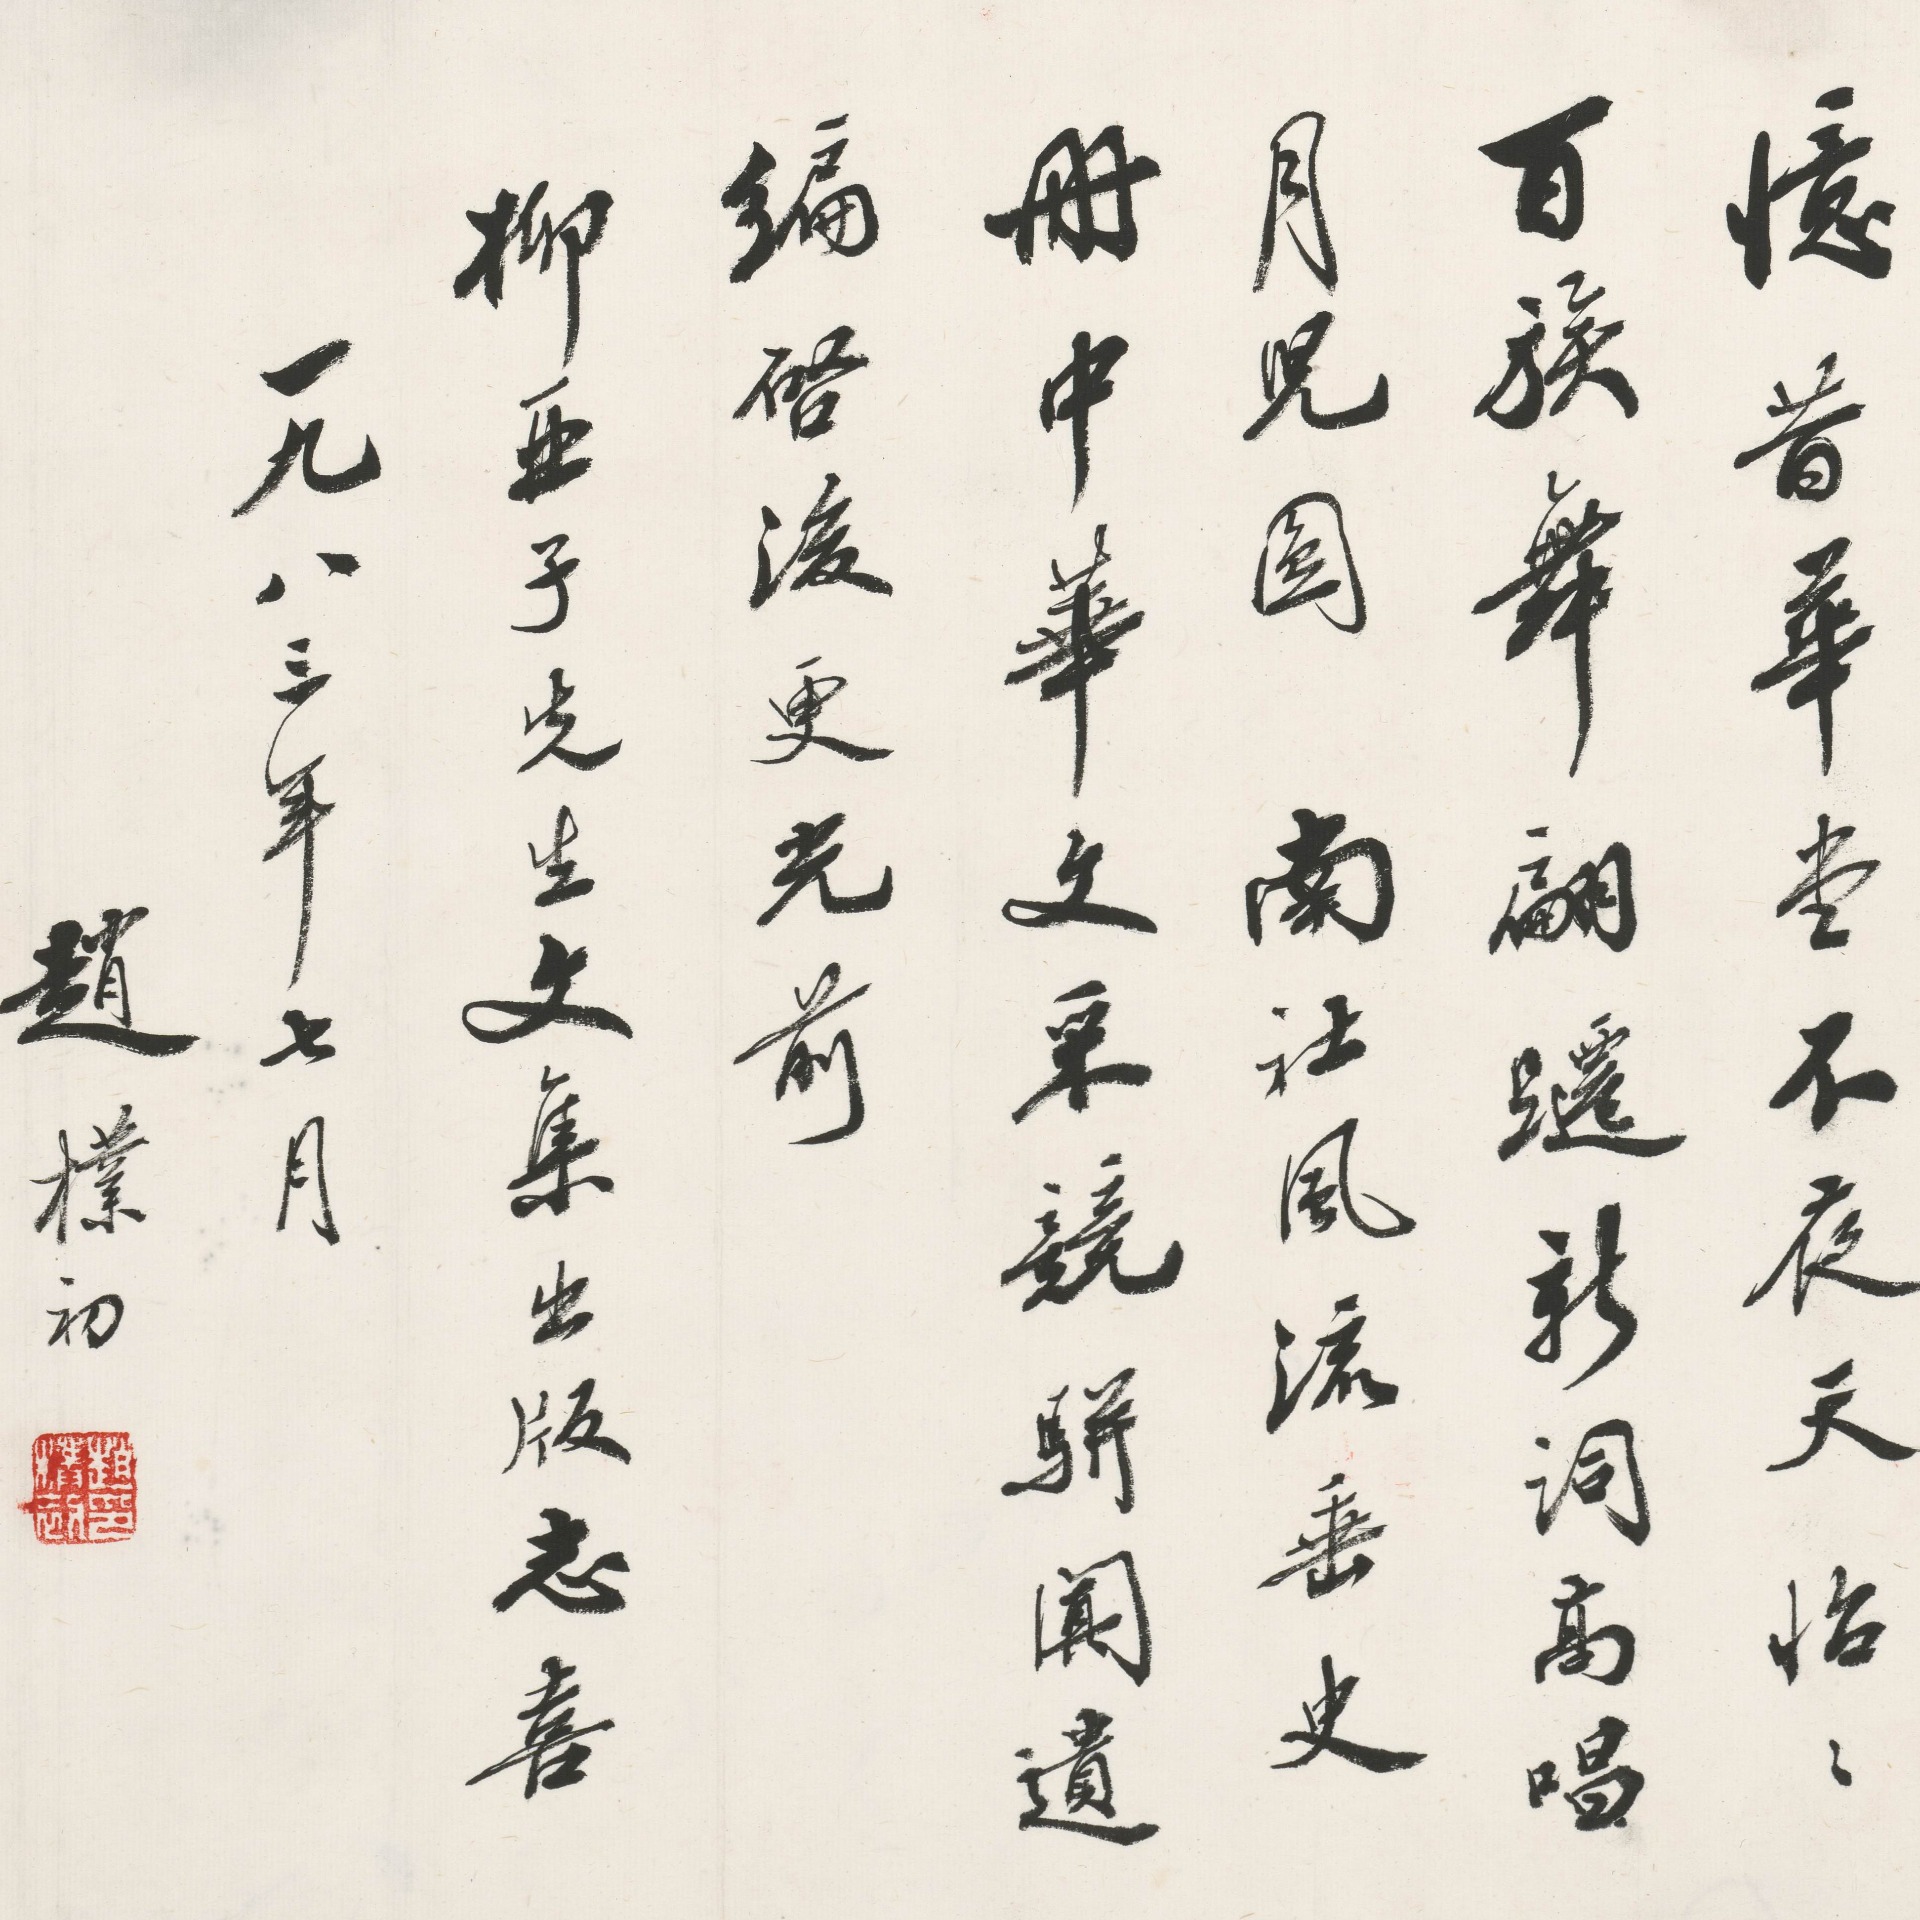 憶昔華堂不夜天怡〻
百族舞翩躚新詞高唱
月兒圓 南社風流垂史
冊中華文采競駢闐遺
編啓後更光前
柳亞子先生文集出版志喜
一九八三年七月
趙樸初
趙樸初印